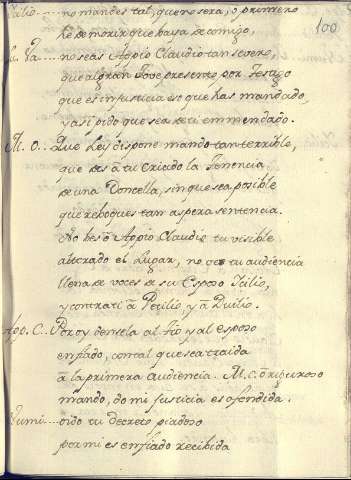 Icilio.... no mandes tal, que no sera, o primero
100
he de morir que haya de comigo,
no seas Appio Claudio tan severo,
que al gran Jove presento por testigo
que es injusticia esto que has mandado,
y asi pido que sea de ti emmendado.
M. O. Que Ley dispone mando tan terrible,
que des a tu criado la tenencia
de una Doncella, sin que sea posible
que reboques tan aspera sentencia.
No bes o Appio Claudio tu visible
alterado el Lugar, no oes tu audiencia
llena de voces de su Esposo Icilio,
y contra ti a Petilio, y a Duilio.
App. C. Por oy densela al tio y al esposo
en fiado, con tal que sea traida
a la primera audiencia. M. C. O riguroso
mando, do mi justicia es ofendida.
Numi.... oido tu decreto piadoso
por mi es en fiado recibida